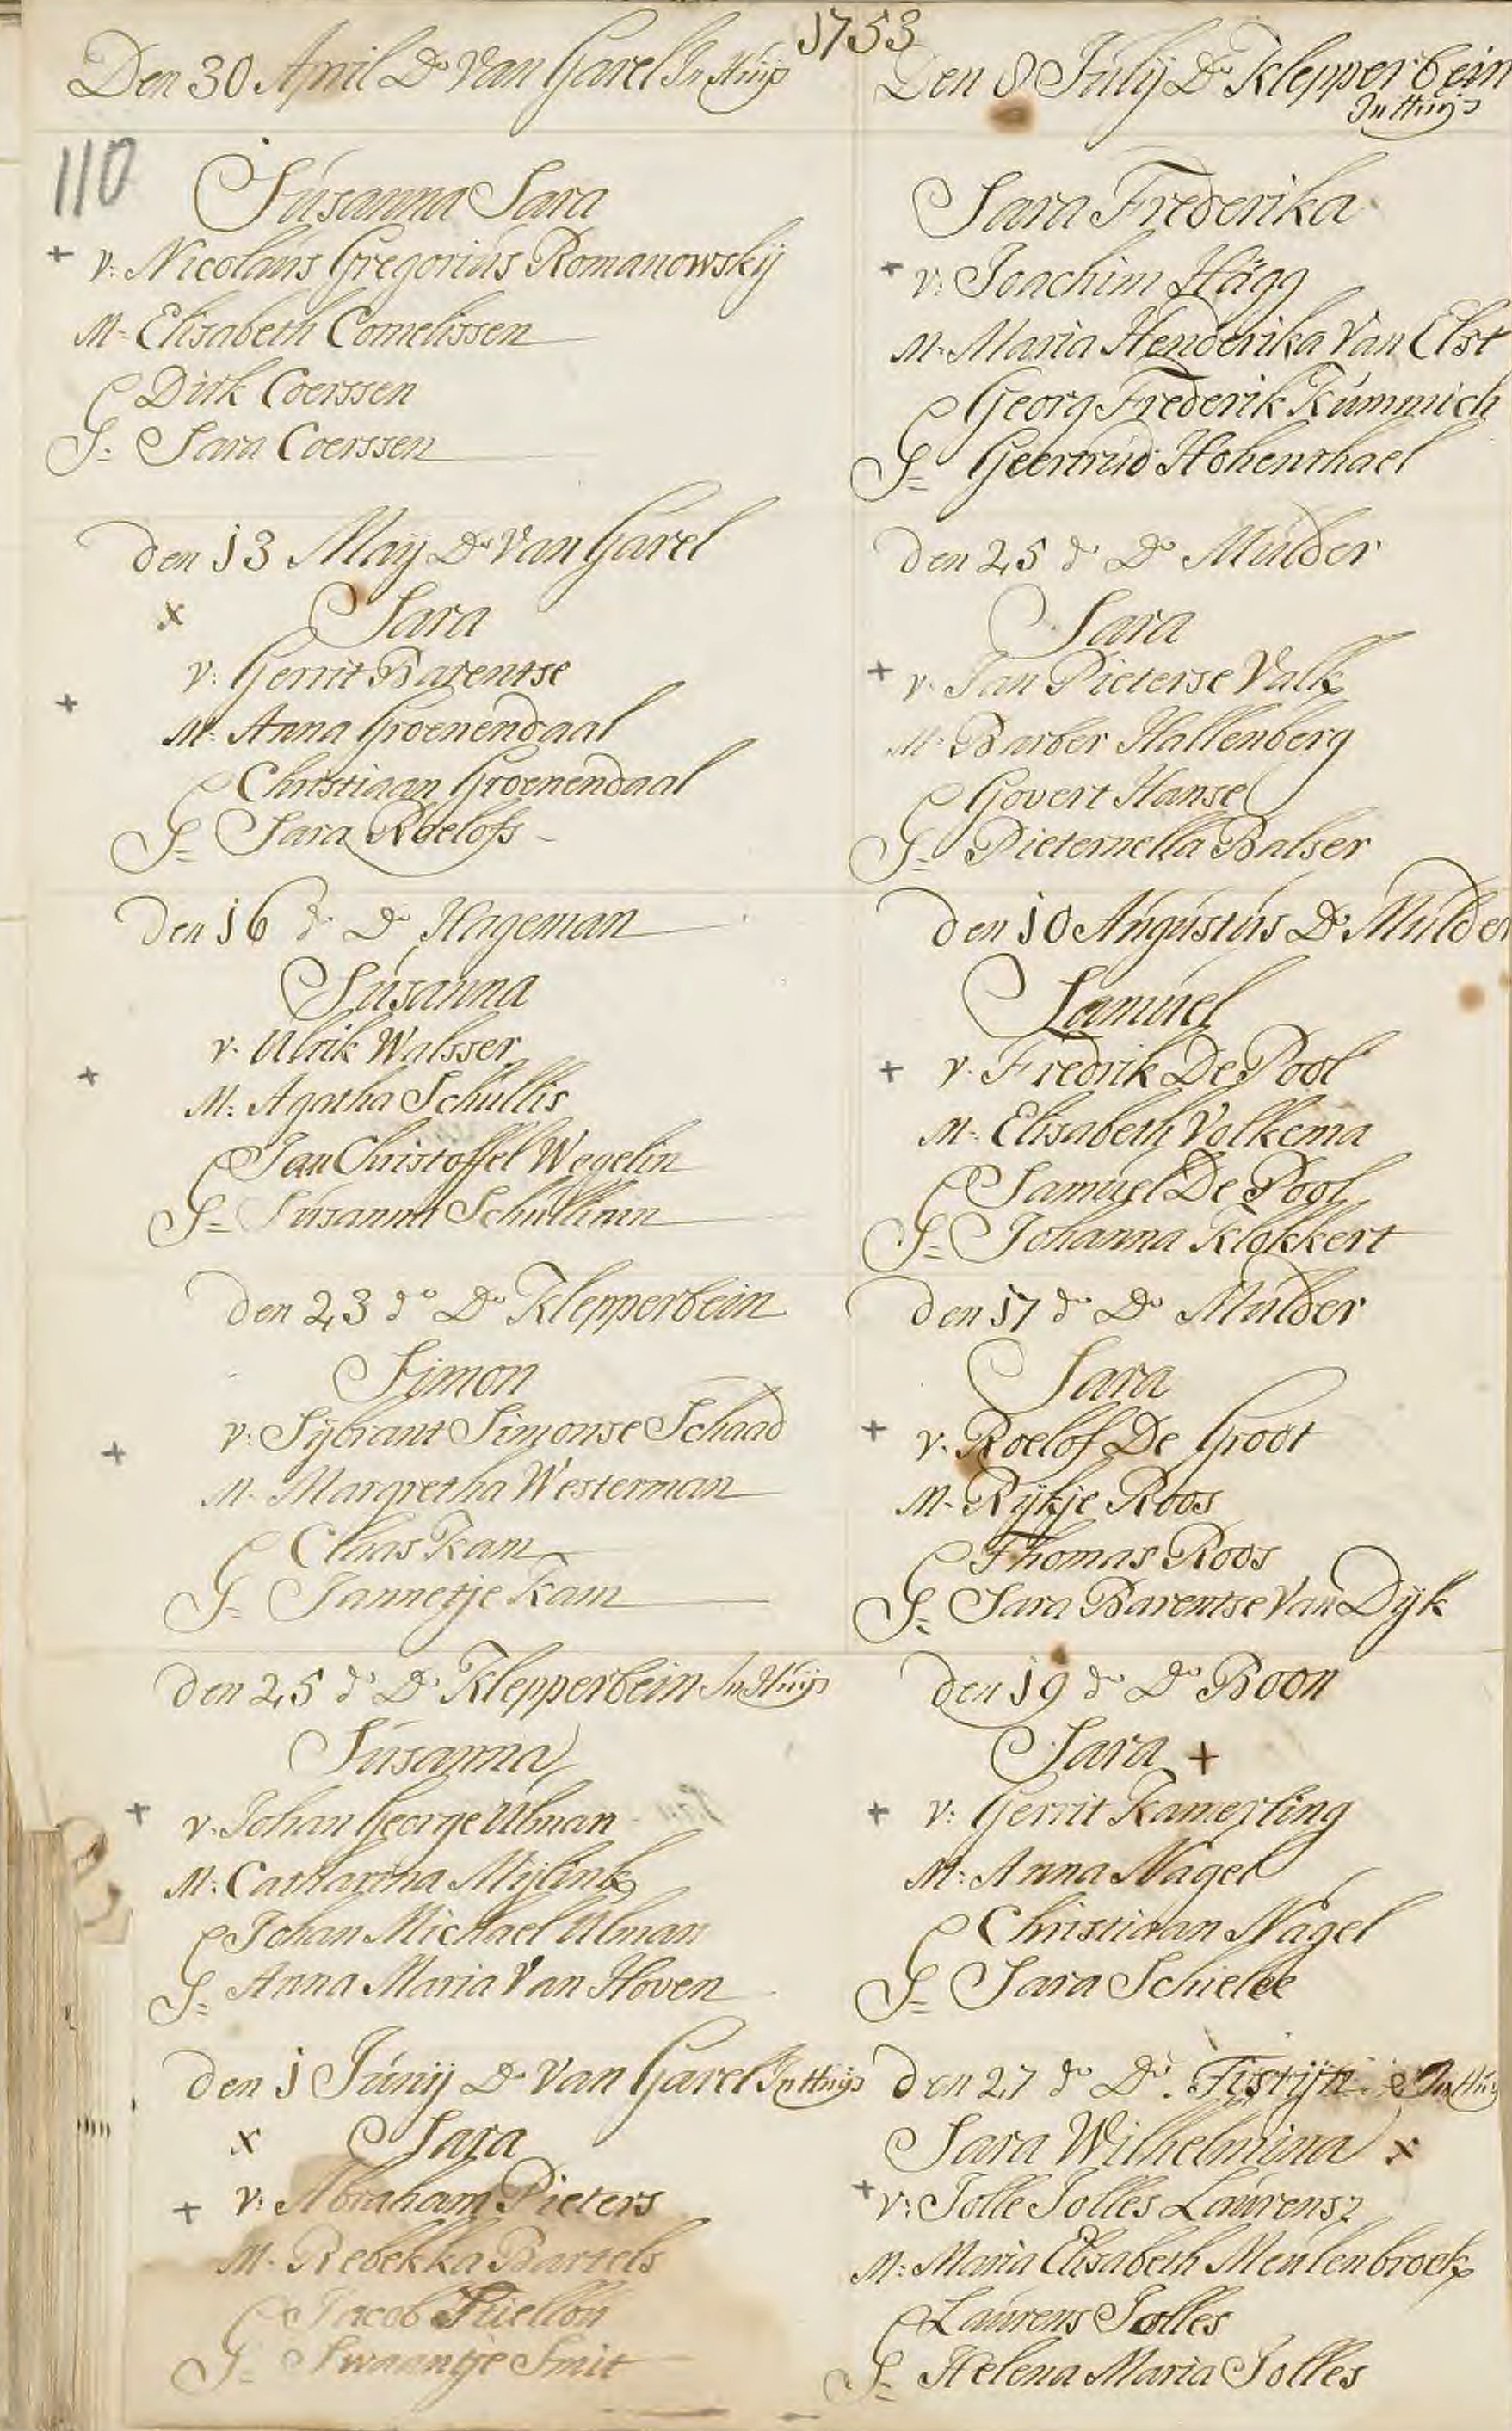 1753
110
Den 30 April Do Van Garel In Huijs
Susanna Sara
+ v: Nicolaus Gregorius Romanowskij
M: Elisabeth Cornelissen
Dirk Coerssen
G: Sara Coerssen
den 13 Maij Do Van Garel
x Sara
v: Gerrit Barentse
+ M: Anna Groenendaal
Christiaan Groenendaal
G: Sara Roelofs
den 16 do Do Hageman
Susanna
v: Ulrik Walsser
+ M: Agatha Schullis
Jan Christoffel Wegelin
G: Susanna
den 23 do Do Klepperbein
Simon
v: Sijbrant Simonse Schaad
+ M: Margretha Westerman
Claas Kam
G: Jannetje Kam
den 25 do Do Klepperbein In Huijs
Susanna
+ v: Johan George Ulman
M: Catharina Mijlink
Johan Michael Ulman
G: Anna Maria Van Hoven
den 1 Junij Do Van Garel In Huijs
x Sara
+ v: Abraham Pieters
M: Rebekka Bartels
Jacob
G: Swaantje Smit
Den 8 Julij Do Klepperbein
In Huijs
Sara Frederika
+ v: Joachim Hägg
M: Maria Henderika Van Elst
Georg Frederik Kummich
G: Geertruid Hohenthael
den 25 do Do Mulder
Sara
+ v: Jan Pieterse Valk
M: Barber Hallenberg
Govert Hanse
G: Pieternella Balser
den 10 Augustus Do Mulder
Samuel
+ v: Fredrik De Pool
M: Elisabeth Volkema
Samuel De Pool
G: Johanna Klokkert
den 17 do Do Mulder
Sara
+ v: Roelof De Groot
M: Rijkje Roos
Thomas Roos
G: Sara Barentse Van Dijk
den 19 do Do Boon
Sara +
+ v: Gerrit Kamerling
M: Anna Nagel
Christiaan Nagel
G: Sara Schielee
den 27 do Do. Tistijn In Huijs
Sara Wilhelmina x
+ v: Jolle Jolles Laurensz
M: Maria Elisabeth Meulenbroek
Laurens Jolles
G: Helena Maria Jolles